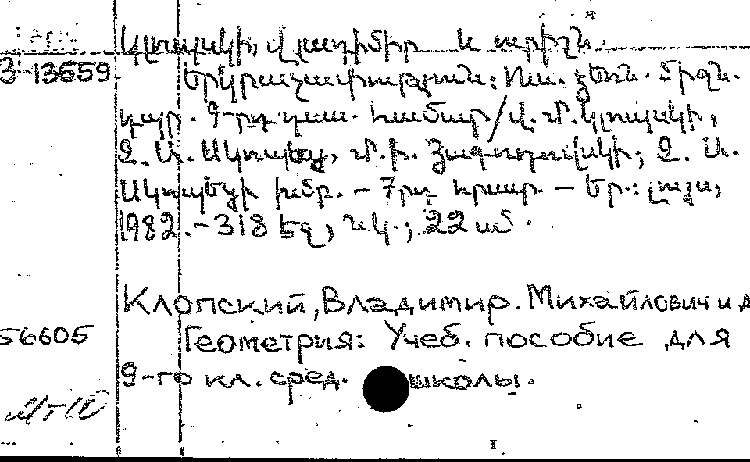 Կլոպսկի, Վլադիմիր և ուրիշն.
3-13659 Երկրաչափություն: Ուս. ձեռն. միջն.
դպր. 9-րդ դաս. համար/Վ. Մ. Կլոպսկի,
Զ. Ա. Սկոպեց, Մ. Ի. Յագոդովսկի; Զ. Ա.
Սկոպեցի խմբ. – 7րդ հրատ. – Եր.: Լույս,
1982. – 318 էջ, նկ.; 22 սմ.
Клопский, Владимир. Михайлович и д
56605 Геометрия: Учеб. пособие для
9-го кл. сред. школы.